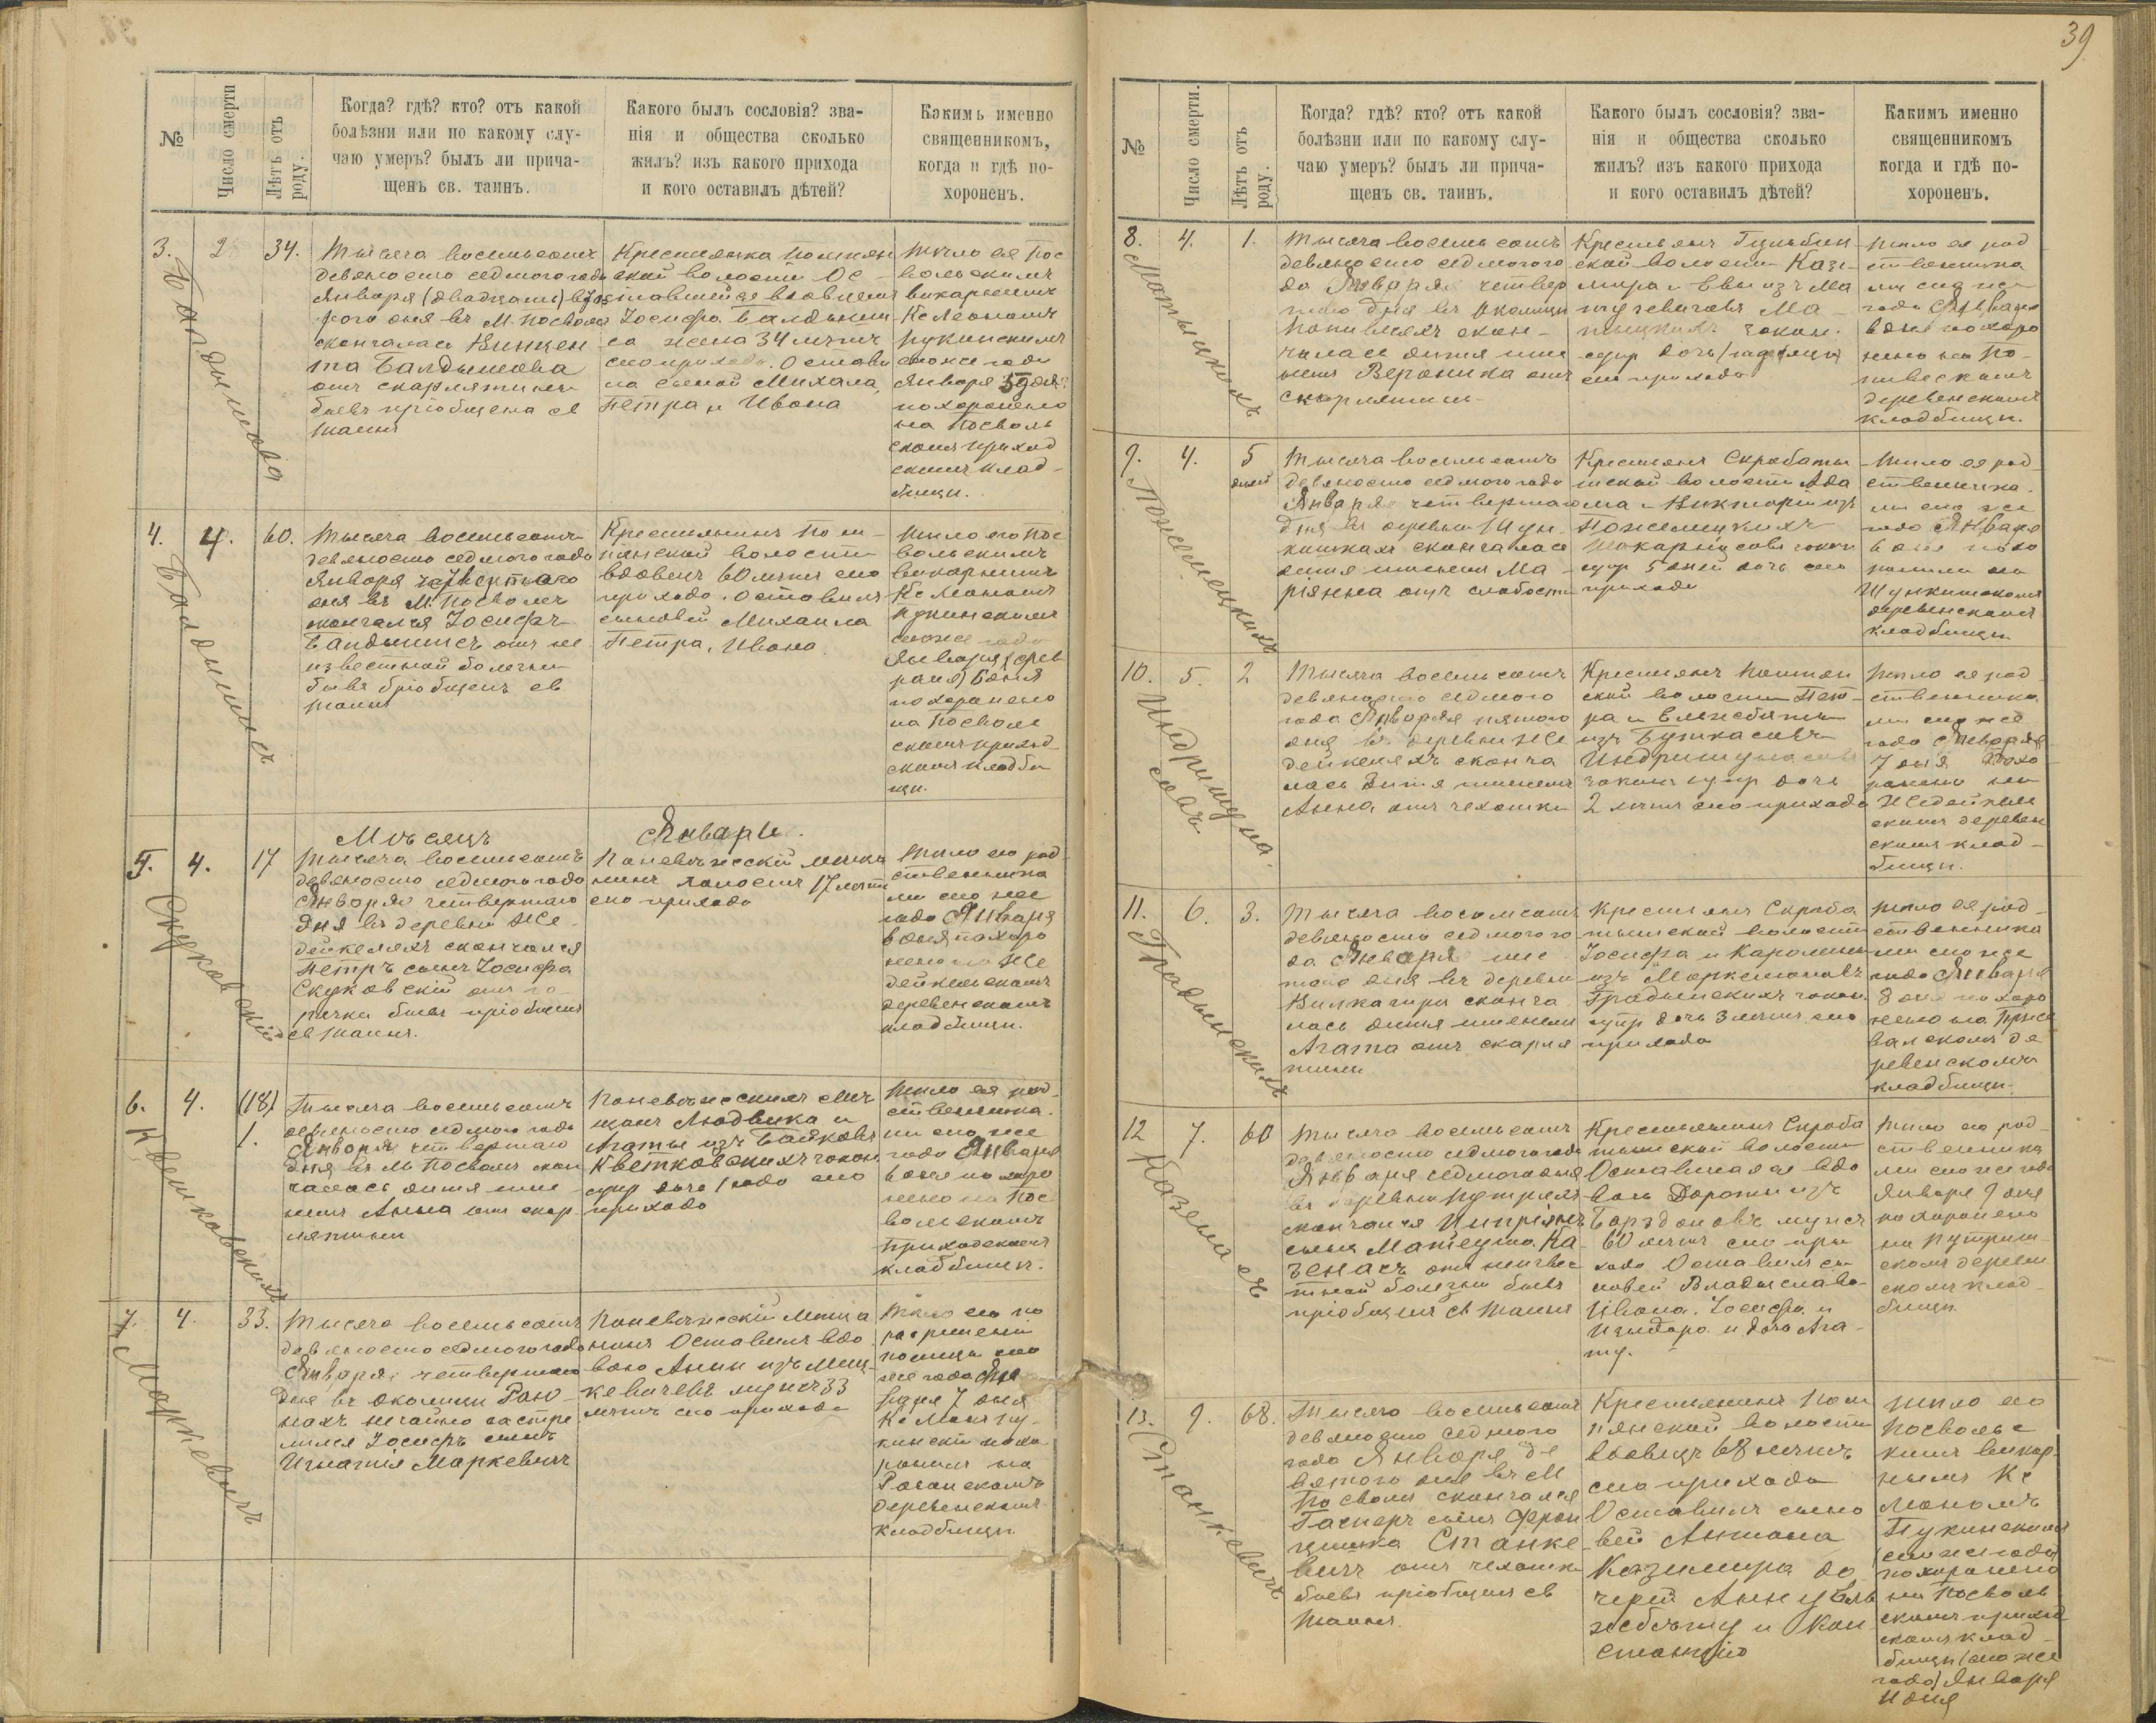 39
№
Число смерти
Лѣтъ отъ роду.
Когда? гдѣ? кто? отъ какой
болѣзни или по какому слу-
чаю умеръ? былъ ли прича-
щенъ св. таинъ.
Какого былъ сословія? зва-
нія и общества сколько
жилъ? изъ какого прихода
и кого оставилъ дѣтей?
Какимъ именно
священникомъ,
когда и гдѣ по-
хороненъ.
3.
2
34.
Балдышова
Тысяча восемьсотъ
девяносто седмого года
Января (двадцать) второго
дня въ М. Посволе
скончалась Винцен
та Балдышова
отъ скарлятины
бывъ пріобщена св
таинъ
Крестьянка Помпян
ской волости Ос-
тавшейся вдовцемъ
Іосифа Балдыши
са жена 34 летъ
сего прихода. Остави
ла сыной Михала,
Петра и Ивона
Тѣло ея Пос
вольскимъ
викарнымъ
Кс Леономъ
Пукинскимъ
сегоже года
Января 5 дня
похоронено
на Посволь
скомъ приход
скомъ клад-
бищи.
4.
4.
60.
Балдышисъ
Тысяча восемьсотъ
девяносто седмого года
Января четвертого
дня въ М. Посволе
скончался Іосифъ
Балдышисъ отъ не
известной болезни
бывъ пріобщенъ св
таинъ
Крестьянинъ Пом-
пянской волости
вдовецъ 60 летъ сего
прихода. Оставилъ
сыновей Михаила
Петра, Ивона
Тѣло его Пос
вольскимъ
викарнымъ
Кс Леономъ
Пукинскимъ
сегоже года
Января (фев
раля) 6 дня
похоронено
на Посволь
скомъ приход
скомъ кладби
щи.
Мѣсяцъ Январь.
5.
4.
17
Скуковскій
Тысяча восемьсотъ
девяносто седмого года
Января четвертаго
дня въ деревни Же-
дейкеляхъ скончался
Петръ сынъ Іосифа
Скуковскій отъ го-
рячки бывъ пріобщенъ
св таинъ.
Поневѣжескій меща
нинъ холостъ 17 летъ
сего прихода
Тѣло его род-
ственника
ми сего же
года Января
6 дня похоро
нено на Же
дейкельскомъ
деревенскомъ
кладбищи.
6.
4.
(18)
1.
Квятковскихъ
Тысяча восемьсотъ
девяносто седмого года
Января четвертаго
дня въ М Посволе скон
чалась дитя име-
немъ Анна отъ скар-
лятины
Поневѣжескихъ мѣ
щанъ Людвика и
Агаты изъ Байковъ
Квятковскихъ закон.
супр дочь 1 года сего
прихода
Тѣло ея род-
ственника-
ми сего же
года Января
6 дня похоро
нено на Пос
вольскомъ
приходскомъ
кладбищи.
7.
4.
33.
Маркевичъ
Тысяча восемьсотъ
девяносто седмого года
Января четвертаго
дня въ околицы Раю-
нахъ нечайно застре
лился Іосифъ сынъ
Игнатія Маркевичъ
Поневѣжескій меща
нинъ Оставилъ вдо
вою Анны изъ Миц-
кевичевъ мужъ 33
летъ сего прихода
Тѣло его по
разрешеніи
полиціи сего
же года Ян
варя 7 дня
Кс Леонъ Пу-
кинскій похо
ронилъ на
деревенскомъ
кладбищи
№
Число смерти.
Лѣтъ отъ роду.
Когда? гдѣ? кто? отъ какой
болѣзни или по какому слу-
чаю умеръ? былъ ли прича-
щенъ св. таинъ.
Какого былъ сословія? зва-
нія и общества сколько
жилъ? изъ какого прихода
и кого оставилъ дѣтей?
Какимъ именно
священникомъ
когда и гдѣ по-
хороненъ.
8.
4.
1.
Тысяча восемьсотъ
девяносто седмого го
да Января четвер
таго дня въ околицы
скон-
чалась дитя име
немъ Вероника отъ
скарлятины
Крестьянъ
ской волости Кази-
мира и Евы изъ Ма
цкевичовъ
закон.
супр дочь 1 года
сего прихода
Тѣло ея род
ственника
ми сего же
года Января
6 дня похоро
нено на По-
деревенскомъ
кладбищи.
9.
4.
5
дней
Тысяча восемьсотъ
девяносто седмого года
Января четвертаго
дня въ деревни Шун-
кишкахъ скончалась
дитя именемъ Ма-
ріянна отъ слабости
Крестьянъ Скробаты
шской волости Ада
ма и Викторіи изъ
закон
супр 5 дней дочь сего
прихода
Тѣло ея род
ственника-
ми сего же
года Января
6 дня похо
ронили на
Шункишскомъ
деревенскомъ
кладбищи
10.
5.
2
Индришунасовъ
Тысяча восемьсотъ
девяносто седмого
года Января пятого
дня въ деревни Же
дейкеляхъ сконча
лась дитя именемъ
Анна отъ чехотки
Крестьянъ Помпян
ской волости Пет-
ра и Елисебяты
изъ Буткасовъ
Индришунасовъ
закон супр дочь
2 летъ сего прихода
Тѣло ея род
ственника
ми сегоже
года Января
7 дня похо
ронено на
Жедейкель
скомъ деревен
скомъ клад-
бищи.
11.
6.
3.
Градынскихъ
Тысяча восемьсотъ
девяносто седмого го
да Января шес
таго дня въ деревни
сконча
лась дитя именемъ
Агата отъ скарля
тины
Крестьянъ Скроба
тышской волости
Іосифа и Каролины
изъ Маркелановъ
Градынскихъ закон.
супр дочь 3 летъ сего
прихода
Тѣло ея род-
ственника
ми сегоже
года Января
8 дня похоро
нено на
де
ревенскомъ
кладбищи.
12
7.
60
Казенасъ
Тысяча восемьсотъ
девяносто седмого года
Января седмого дня
въ деревни Путряхъ
скончался Ципріянъ
сынъ Матеуша Ка-
зенасъ отъ неизвес
тной болезни бывъ
пріобщенъ св таинъ
Крестьянинъ Скроба
тышской волости
Оставшаяся вдо
вою Дороты изъ
мужъ
60 летъ сего при
хода Оставилъ сы
новей Владыслава
Ивона. Іосифа и
Изыдора и дочь Ага-
ту.
Тѣло его род-
ственника
ми сегоже года
Января 9 дня
похоронено
на Путриш-
скомъ деревен
скомъ клад
бищи.
13.
9.
68.
Станкевичъ
Тысяча восемьсотъ
девяносто седмого
года Января де
вятого дня въ М
Посволе скончался
Гасперъ сынъ Фран
цишка Станке-
вичъ отъ чехотки
бывъ пріобщенъ св
таинъ.
Крестьянинъ Пом
пянской волости
вдовецъ 68 летъ
сего прихода
Оставилъ сыно
вей Антона
Казимира до
черей Анну Ели
зебѣту и Кон
станцію
Тѣло его
Посволь с
кимъ викар
нымъ Кс
Леономъ
Пукинскимъ
(сегоже года)
похоронено
на Посволь
скомъ приход
скомъ клад-
бищи (сегоже
года) Января
11 дня